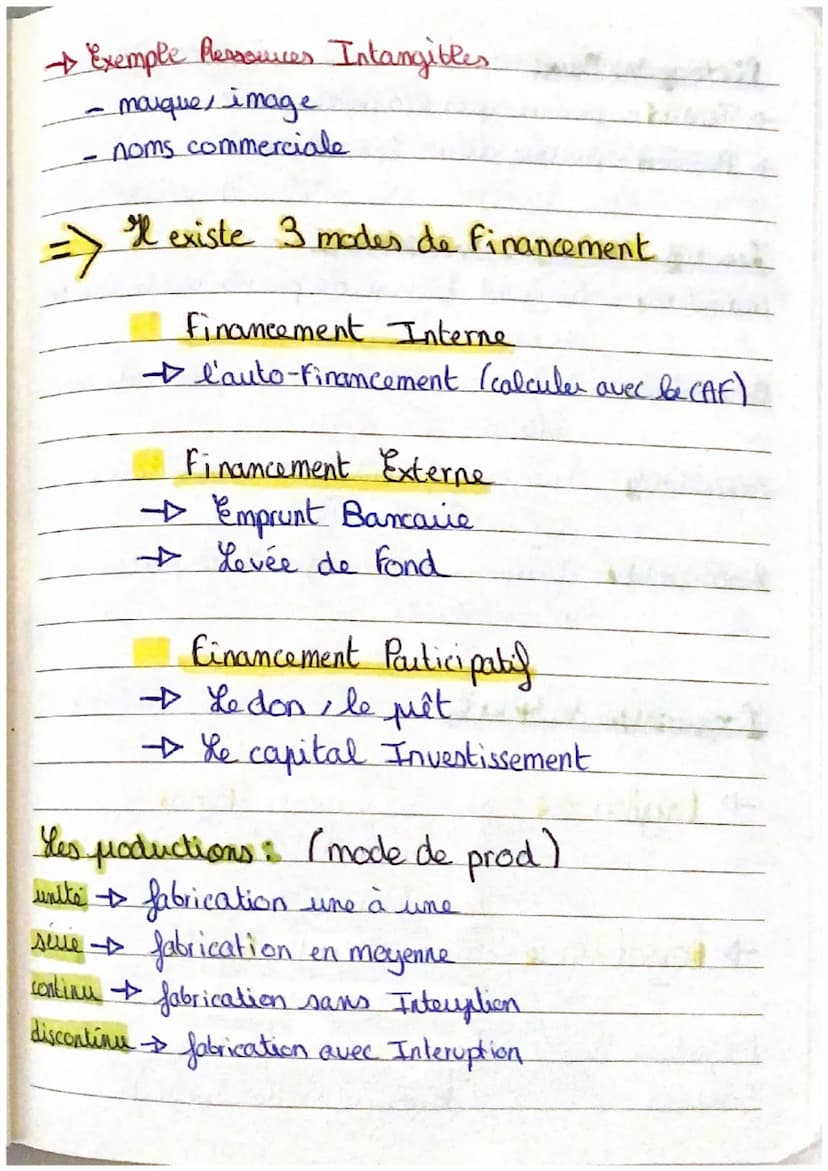 → Exemple Ressources Intangibles
- marque, image
- noms commerciale
⇒ Il existe 3 modes de financement
Financement Interne
→ l'auto-financement (calculer avec la CAF)
Financement Externe
→ Emprunt Bancaire
→ Levée de fond
Financement Participatif
→ Le don, le prêt
→ Le capital Investissement
Les productions : (mode de prod)
unité → fabrication une à une
série → fabrication en moyenne
continu → fabrication sans Interuption
discontinu → fabrication avec Interuption